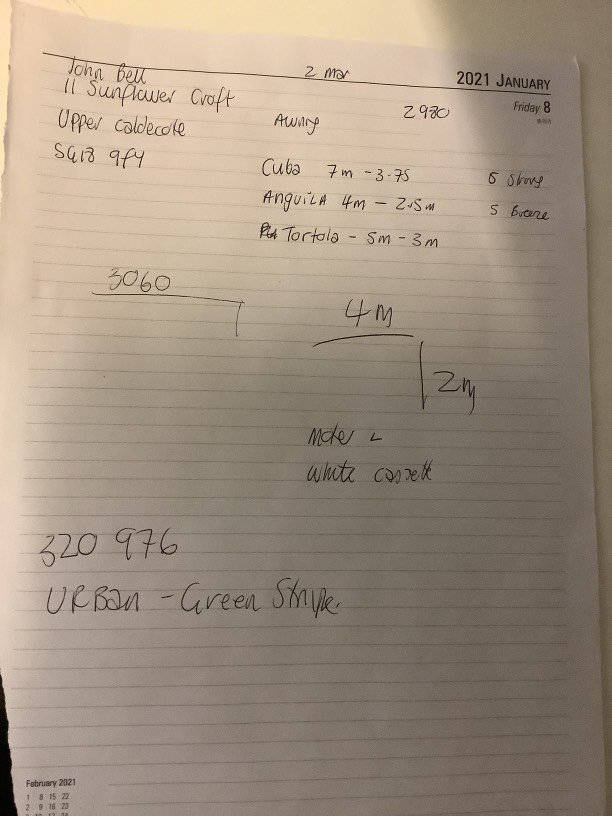 John Bell
2 mar
2021 JANUARY
11 Sunflower Croft
2980
Friday 8
Upper Caldecote
Awning
SG18 9FY
Cuba 7m - 3.75
6 Strong
AnguiLA 4m - 2.5m
5 Breeze
Tortola - 5m - 3m
3060
4m
2m
Moter L
white cassett
320 976
URBan - Green Stripe.
February 2021
1 8 15 22
2 9 16 23